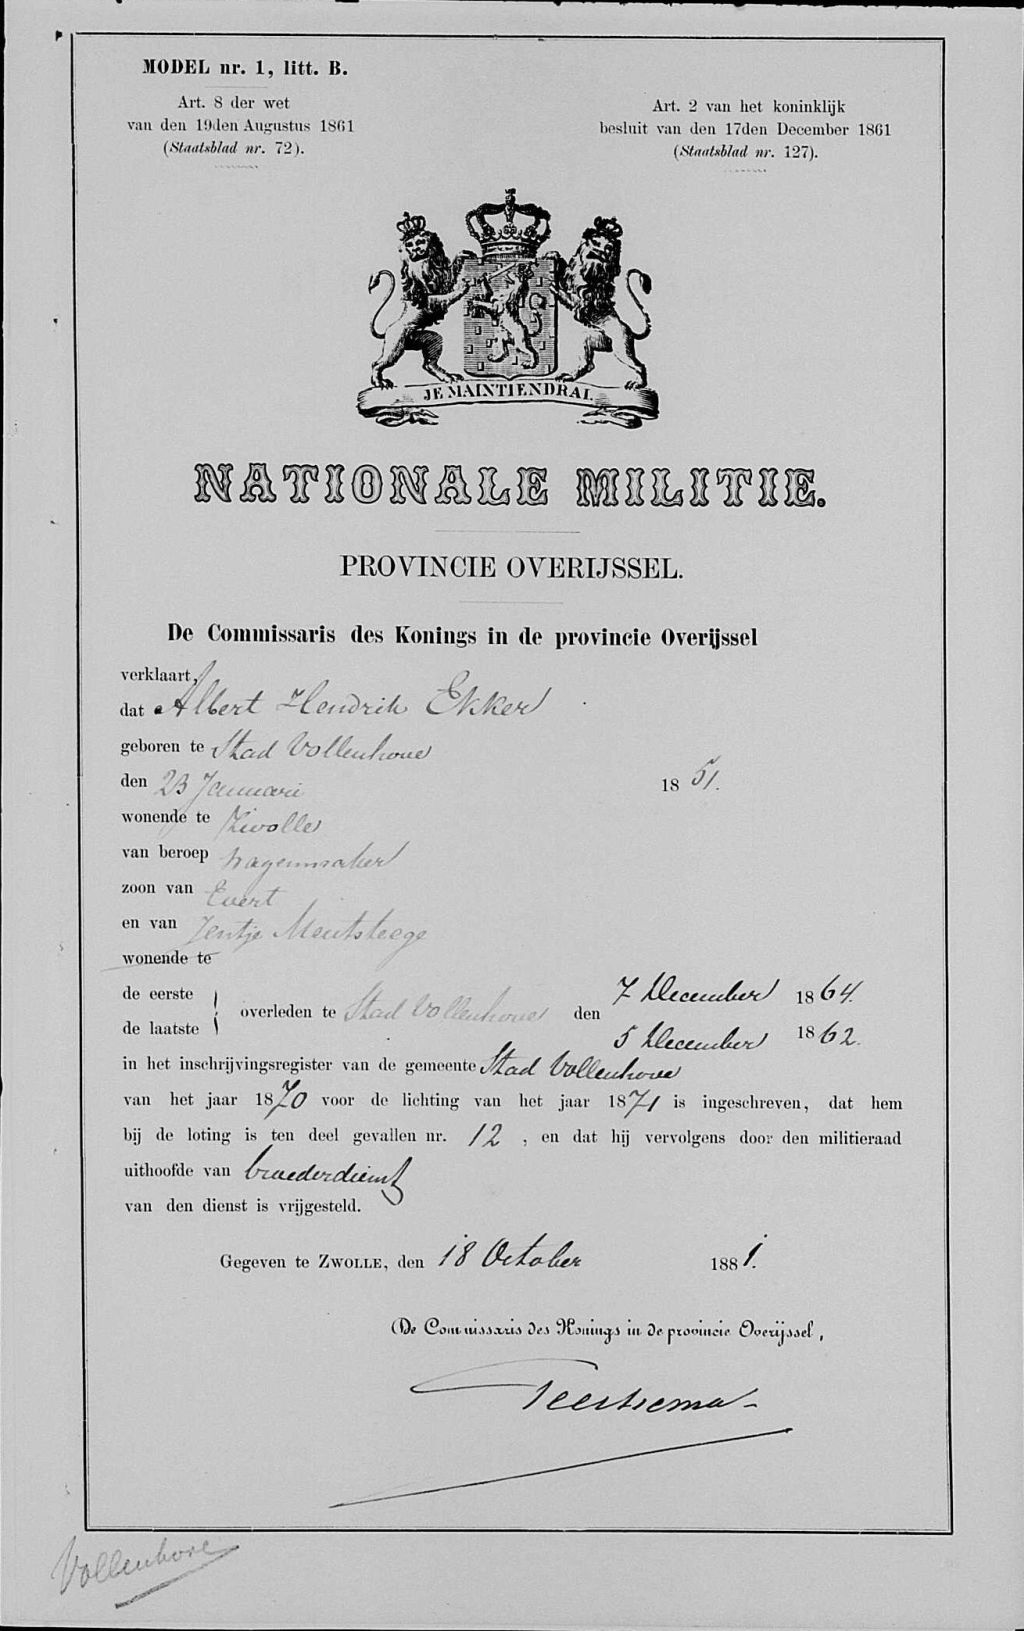 MODEL nr. 1, litt. B.
Art. 8 der wet
van den 19den Augustus 1861
(Staatsblad nr. 72).
Art. 2 van het koninklijk
besluit van den 17den December 1861
(Staatsblad nr. 127).
JE MAINTIENDRAI.
NATIONALE MILITIE.
PROVINCIE OVERIJSSEL.
De Commissaris des Konings in de provincie Overijssel
verklaart,
dat Albert Hendrik Ekker
geboren te Stad Vollenhove
den 23 Januari 1851.
wonende te Zwolle
van beroep wagenmaker
zoon van Evert
en van Jentje Meutsteege
wonende te
de eerste
de laatste
overleden te Stad Vollenhove den
7 December 1864.
5 December 1862.
in het inschrijvingsregister van de gemeente Stad Vollenhove
van het jaar 1870 voor de lichting van het jaar 1871 is ingeschreven, dat hem
bij de loting is ten deel gevallen nr. 12, en dat hij vervolgens door den militieraad
uithoofde van broederdienst
van den dienst is vrijgesteld.
Gegeven te ZWOLLE, den 18 October 1881.
De Commissaris des Konings in de provincie Overijssel,
Geertsema
Vollenhove